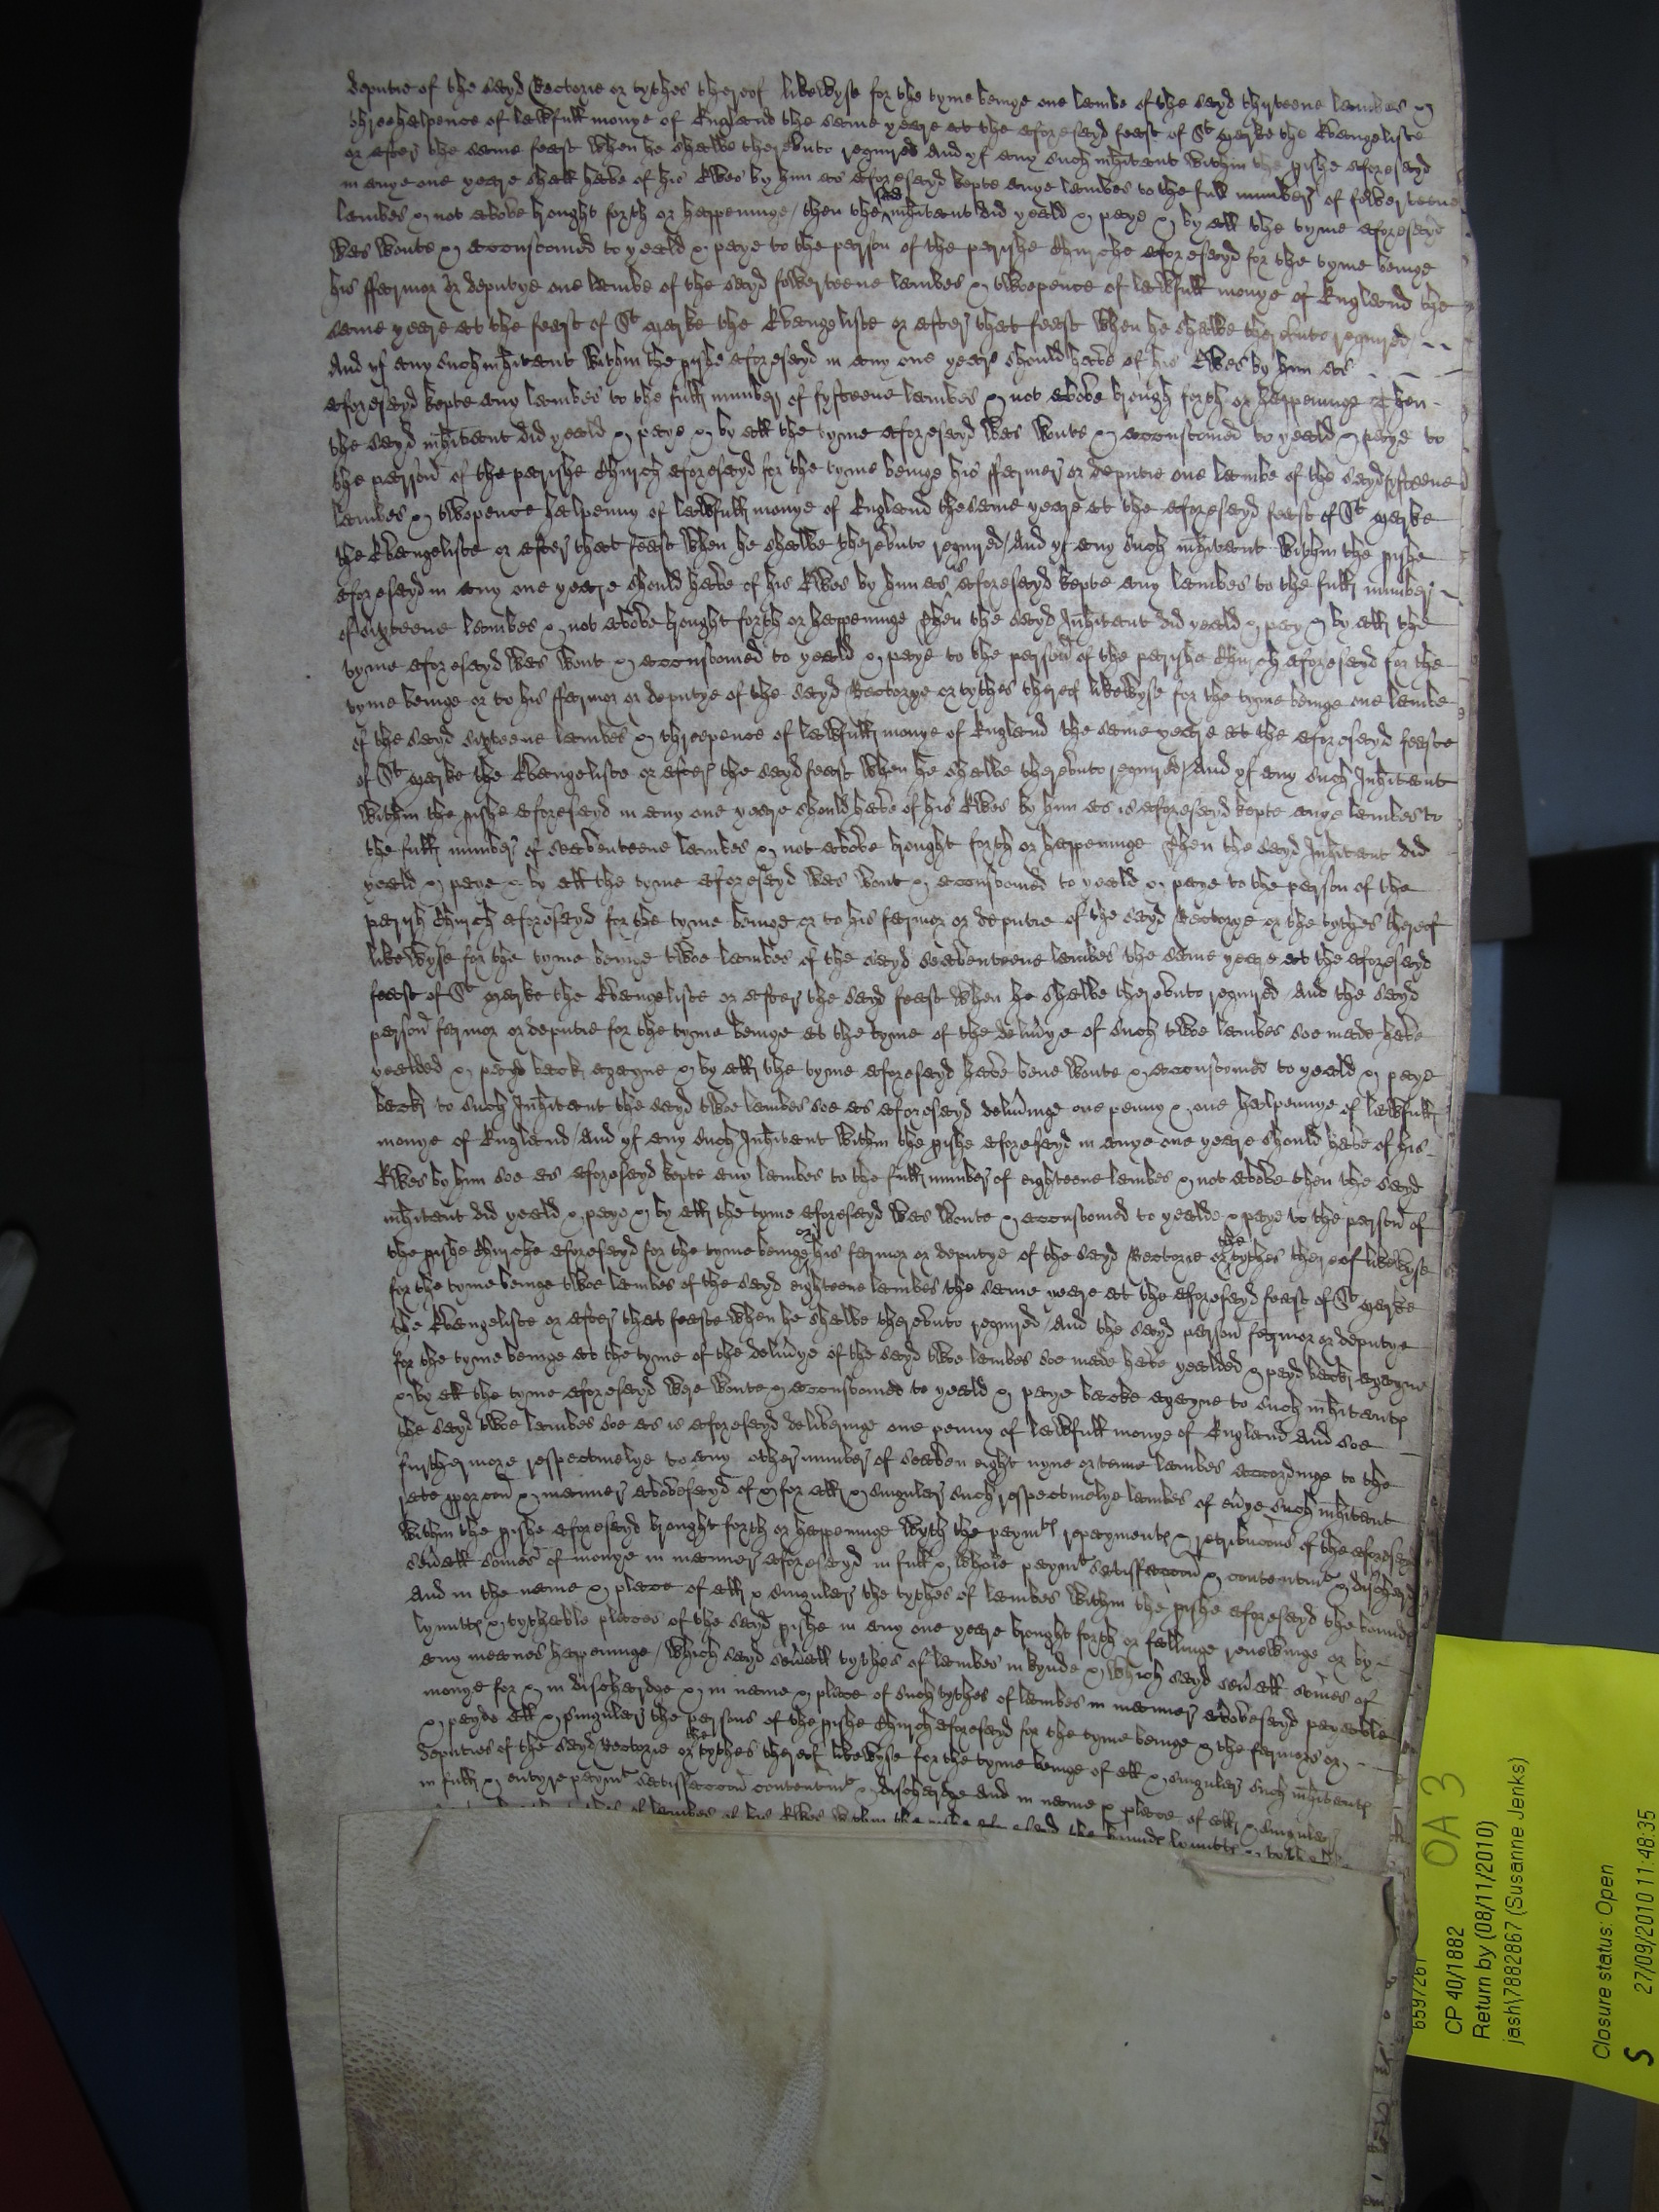 deputie of the sayd Rectorie or tythes thereof likewyse for the tyme beinge one lambe of the sayd thyrteene lambes &
threehalpence of lawfull monye of England the same yeare at the aforesayd feast of St Marke the Evangeliste
or after the same feast when he shalbe therevnto required And yf any such inhitant within the pishe aforesayd
in anye one yeare shall have of his Ewes by him as aforesayd kepte anye lambes to the full number of fowerteene
lambes & not above brought forth or happeninge / then the sayd inhitant did yeald & paye & by all the tyme aforesayd
was wonte & accustomed to yeald & paye to the person of the parishe Churche aforesayd for the tyme beinge
his ffarmor or deputye one lambe of the sayd fowerteene lambes & twoepence of lawfull monye of England the
same yeare at the feast of St Marke the Evangeliste or after that feast when he shalbe therevnto required
And yf any such inhitant within the pishe aforesayd in any one yeare should have of his Ewes by him as
aforesayd kepte any lambes to the full number of fyfteene lambes & not above brough forth or happeninge Then
the sayd inhitant did yeald & paye & by all the tyme aforesayd was wonte & accustomed to yeald & paye to
the person of the parishe Church aforesayd for the tyme beinge his ffarmer or deputie one lambe of the sayd fyfteene
lambes & twopence halpenny of lawfull monye of England the same yeare at the aforesayd feast of St Marke
the Evangeliste or after that feast when he shalbe therevnto required / And yf any such inhitant within the pishe
aforesayd in any one yeare should have of his Ewes by him as is aforesayd kepte any lambes to the full number
of sixteene lambes & not above brought forth or happeninge Then the sayd Inhitant did yeald & pay & by all the
tyme aforesayd was wont & accustomed to yeald & paye to the person of the parishe Church aforesayd for the
tyme beinge or to his ffarmor or deputye of the sayd Rectorye or tythes thereof likewyse for the tyme beinge one lambe
of the sayd sixteene lambes & threepence of lawfull monye of England the same yeare at the aforesayd feaste
of St Marke the Evangeliste or after the sayd feast when he shalbe therevnto required / And yf any such Inhitant
within the pishe aforesayd in any one yeare should have of his Ewes by him as is aforesayd kepte anye lambes to
the full number of seaventeene lambes & not above brought forth or happeninge Then the sayd Inhitant did
yeald & paye & by all the tyme aforesayd was wont & accustomed to yeald & paye to the person of the
parish Church aforesayd for the tyme beinge or to his farmor or deputie of the sayd Rectorye or the tythes thereof
likewyse for the tyme beinge twoe lambes of the sayd seaventeene lambes the same yeare at the aforesayd
feast of St Marke the Evangeliste or after the sayd feast when he shalbe therevnto required / And the sayd
person farmor or deputie for the tyme beinge at the tyme of the delivye of such twoe lambes soe made have
yealded & payd back agayne & by all the tyme aforesayd have bene wonte & accustomed to yeald & paye
back to such Inhitant the sayd twoe lambes soe as aforesayd delivinge one penny & one halpennye of lawfull
monye of England / And yf any such Inhitant within the pishe aforesayd in anye one yeare should have of his
Ewes by him soe as aforesayd kepte any lambes to the full number of eighteene lambes & not above then the sayd
inhitant did yeald & paye & by all the tyme aforesayd was wonte & accustomed to yealde & paye to the person of
the pishe Churche aforesayd for the tyme beinge or his farmor or deputye of the sayd Rectorie or the tythes thereof likewyse
for the tyme beinge twoe lambes of the sayd eighteene lambes the same yeare at the aforesayd feast of St Marke
the Evangeliste or after that feaste when he shalbe therevnto required / And the sayd person farmor or deputye
for the tyme beinge at the tyme of the delivye of the sayd twoe lambes soe made have yealded & payd back agayne
& by all the tyme aforesayd were wonte & accustomed to yeald & paye backe agayne to such inhitante
the sayd twoe lambes soe as is aforesayd deliveringe one penny of lawfull monye of England And soe
furthermore respectivelye to any other number of seaven eight nyne or tenne lambes accordinge to the
rate & manner abovesayd of & for all & singuler such respectivelye lambes of evye such inhitant
within the pishe aforesayd brought forth or happeninge wyth the paymts repayments & retribucons of the aforesayd
sevall somes of monye in manner aforesayd in full & whole paymt satisfaccon & contentmt & discharge
And in the name & place of all & singuler the tythes of lambes within the pishe aforesayd the bounds
lymitts & tythable places of the sayd pishe in any one yeare brought forth or fallinge renewinge or by
any meanes happeninge / which sayd sevall tythes of lambes in kynde & which sayd sevall somes of
monye for & in discharge & in name & place of such tythes of lambes in manner abovesayd payable
& payde all & singuler the persons of the pishe Church aforesayd for the tyme beinge & the farmors or
deputies of the sayd Rectorie or the tythes thereof likewyse for the tyme beinge of all & singuler such inhitants
in full & entyre paymt satisfaccon contentmt & discharge And in name & place of all & singuler
of lambes of his Ewes within the pishe aforesayd the bounds lymitts &
6597261
CP 40/1882
OA 3
Return by (08/11/2010)
jash\7882867 (Susanne Jenks)
Closure status: Open
S 27/09/2010 11:48:35